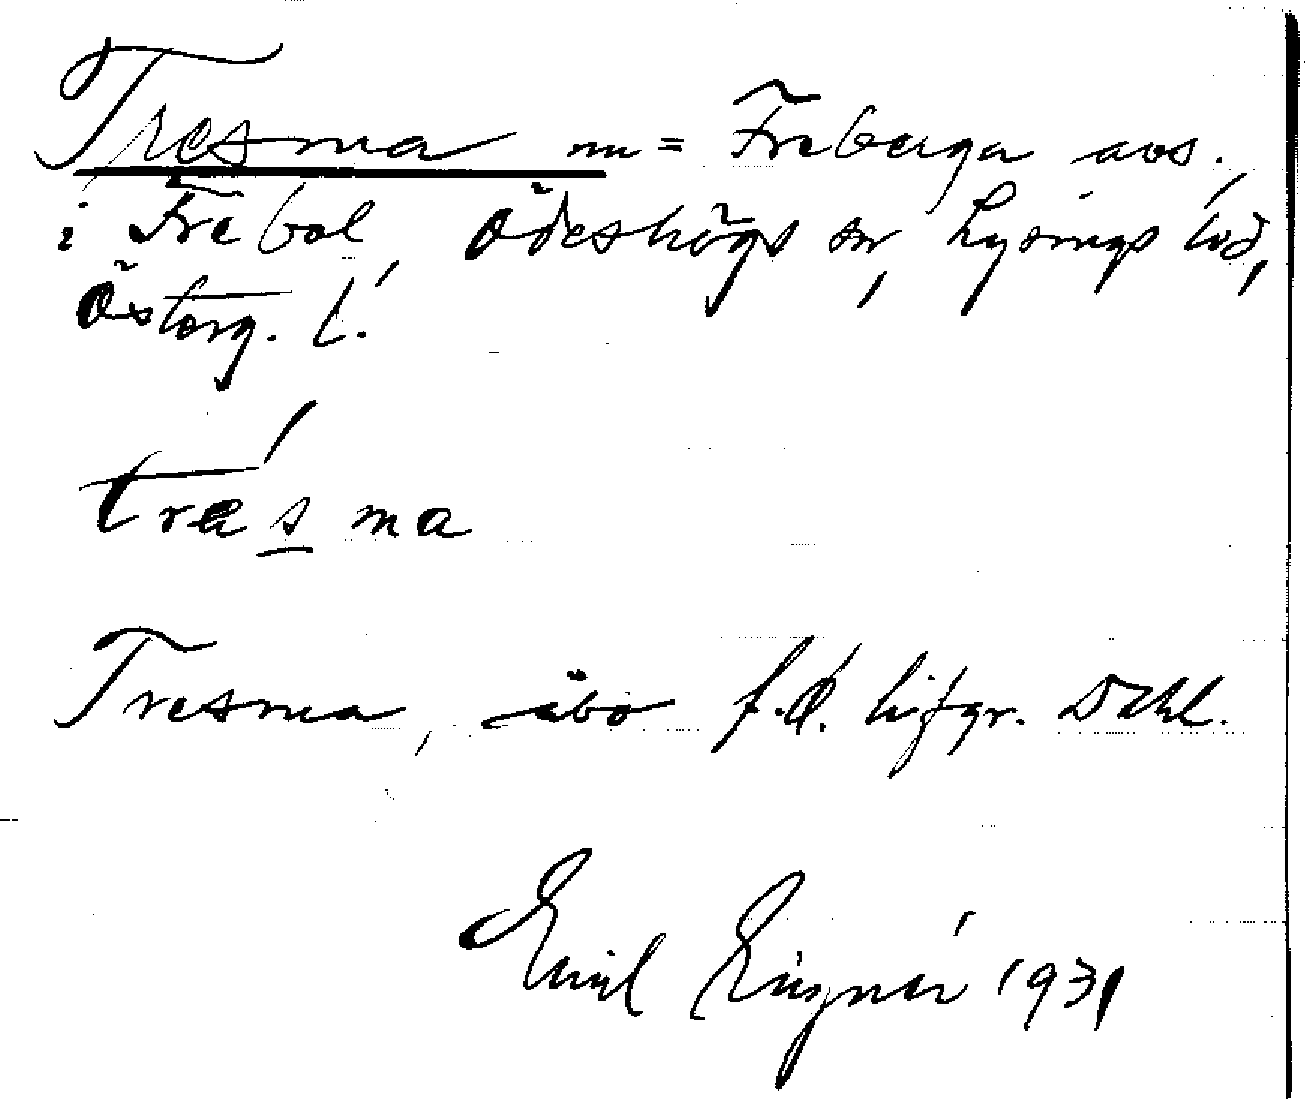 Tresma nu = Freberga avs.,
i Frebol, Ödeshögs sn, Lysings hd,
Österg. l.
tresma
Tresma, åbo f.d. lifgr. Dahl.
Emil 1931